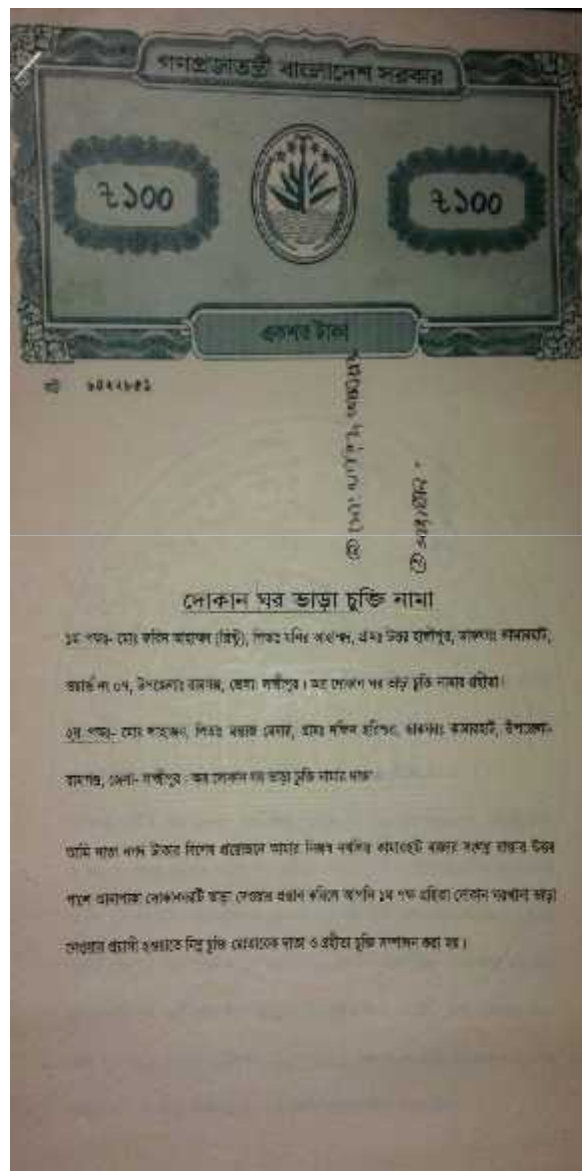 গণপ্রজাতন্ত্রী বাংলাদেশ সরকার
৳১০০ ৳১০০
একশত টাকা
দোকান ঘর ভাড়া চুক্তি নামা
১ম পক্ষঃ- মোঃ ফরিদ আহাম্মদ (রিন্টু), পিতাঃ মনির আহাম্মদ, গ্রামঃ উত্তর হাজীপুর, ডাকঘরঃ কামারহাট,
ওয়ার্ড নং ০৭, উপজেলাঃ রামগঞ্জ, জেলাঃ লক্ষ্মীপুর। অত্র দোকান ঘর ভাড়া চুক্তি নামার গ্রহীতা।
২য় পক্ষঃ- মোঃ শাহাজান, পিতাঃ গ্রামঃ দক্ষিন ডাকঘরঃ কামারহাট, উপজেলা-
রামগঞ্জ, জেলা- লক্ষ্মীপুর। অত্র দোকান ঘর ভাড়া চুক্তি নামার দাতা
আমি দাতা নগদ টাকার বিশেষ প্রয়োজনে আমার নিজস্ব কামারহাট বাজার সংলগ্ন রাস্তার উত্তর
পাশে দোকানঘরটি ভাড়া দেওয়ার প্রস্তাব করিলে আপনি ১ম পক্ষ গ্রহিতা দোকান ঘরখানা ভাড়া
নেওয়ার প্রত্যাশী হওয়াতে নিম্ন চুক্তি মোতাবেক দাতা ও গ্রহীতা চুক্তি সম্পাদন করা হয়।